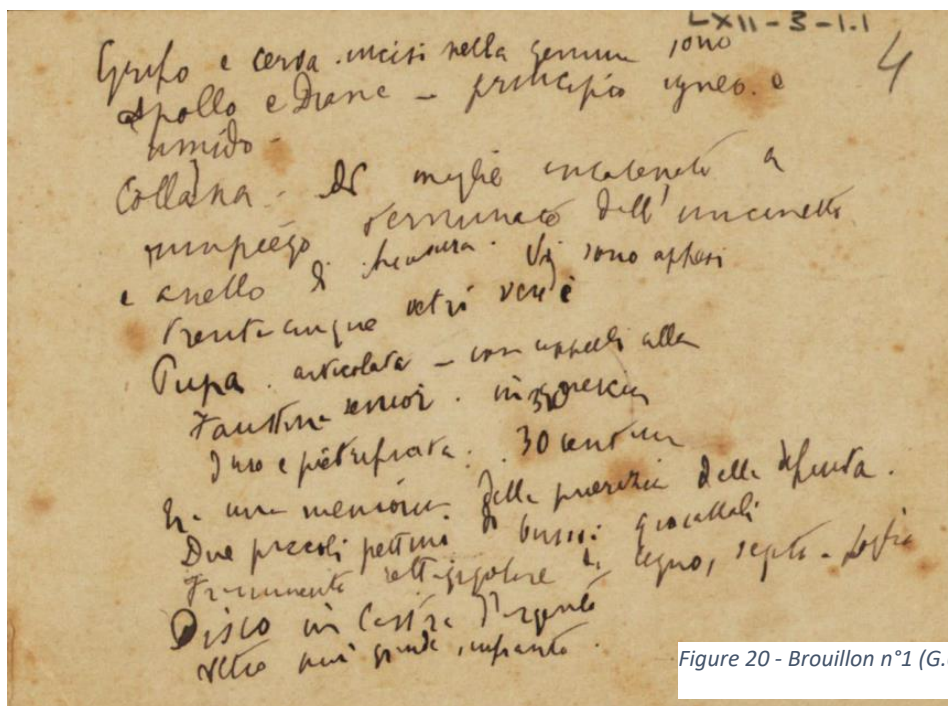 LXII-3-1.1
4
Grifo e cerva incisi nella gemma sono
Apollo e Diana - principio igneo e
umido -
Collana - di maglie incatenate a
terminate dall'uncinetto
e anello di chiusura. Vi sono appesi
trentacinque vetri verdi
Pupa. articolata - con capelli alla
Faustina senior. in quercia
dura e pietrificata. 30 centim
Era una memoria della puerizia della defunta.
Due piccoli pettini di busso: giocattoli
Frammento rettangolare di legno,
Disco in lastra d'argento
altro più grande, infranto.
Figure 20 - Brouillon n°1 (G.